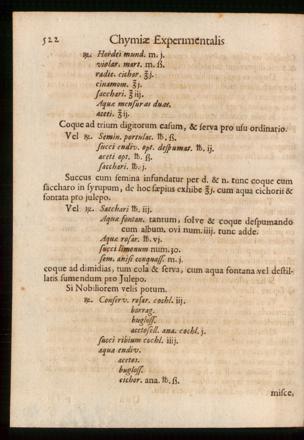 522 Chymiæ Experimentalis
℞. Hordei mund. m. j.
violar. mart. m. ß.
radic. cichor. ℥j.
cinamom. ʒj.
sacchari. ℥iij.
Aquæ mensuras duas.
aceti. ℥ij.
Coque ad trium digitorum casum, & serva pro usu ordinario.
Vel ℞. Semin. portulac. ℔. ß.
succi endiv. opt. despumat. ℔. ij.
aceti opt. ℔. ß.
sacchari. ℔. j.
Succus cum semina infundatur per d. & n. tunc coque cum
saccharo in syrupum, de hoc sæpius exhibe ℥j. cum aqua cichorii &
fontata pro julepo.
Vel ℞. Sacchari ℔. iij.
Aquæ fontan. tantum, solve & coque despumando
cum album. ovi num. iiij. tunc adde.
Aquæ rosar. ℔. vj.
succi limonum num. 30.
sem. anisi conquass. m. j.
coque ad dimidias, tum cola & serva, cum aqua fontana vel destil-
latis sumendum pro Julepo.
Si Nobiliorem velis potum.
℞. Conserv. rosar. cochl. iij.
borrag.
bugloss.
acetosell. ana. cochl. j.
succi ribium cochl. iiij.
aquæ endiv.
acetos.
bugloss.
cichor. ana. ℔. ß.
misce.